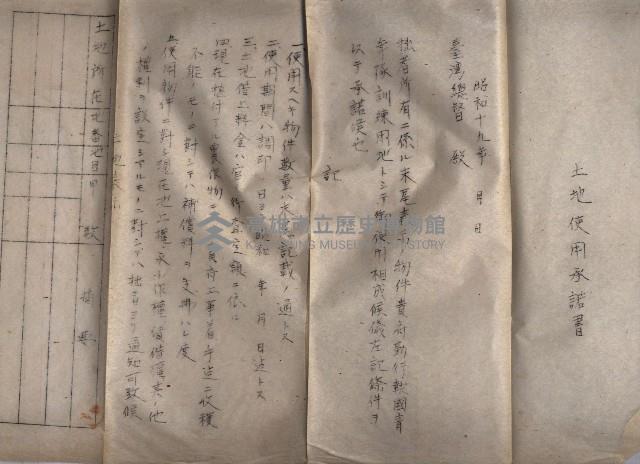 土地使用承諾書
昭和十九年 月 日
臺灣總督 殿
拙者所有ニ係ル末尾表示物件貴府勤行報國青
年隊訓練用地トシテ御使用相成候儀左記條件ヲ
以テ承諾候也
記
一、使用スヘキ物件数量ハ末尾記載ノ通トス
二、使用期間ハ調印ノ日ヨリ昭和 年 月 日迄トス
三、土地借上料金ハ官所査定額ニ依ル
四、現在植付アル農作物ニ工事着手迄ニ收穫
不能ノモノニ對シテハ補償料ヲ支拂ハレ度
五、使用物件ニ對シ現在地上權、永小作權、賃借權其ノ他
ノ權利ヲ設定シアルモノニ對シテハ拙者ヨリ通知可致候
土地表示
土地所在地番地目甲数 摘要
高雄市立歷史博物館
KAOHSIUNG MUSEUM OF HISTORY